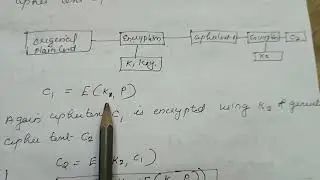 cipher text C1
Original Plain text
Encryption
Ciphertext
Encryption
C2
K1 Key
K2
C1 = E(K1, P)
Again ciphertext C1 is encrypted using K2 & generate
cipher text C2
C2 = E(K2, C1)